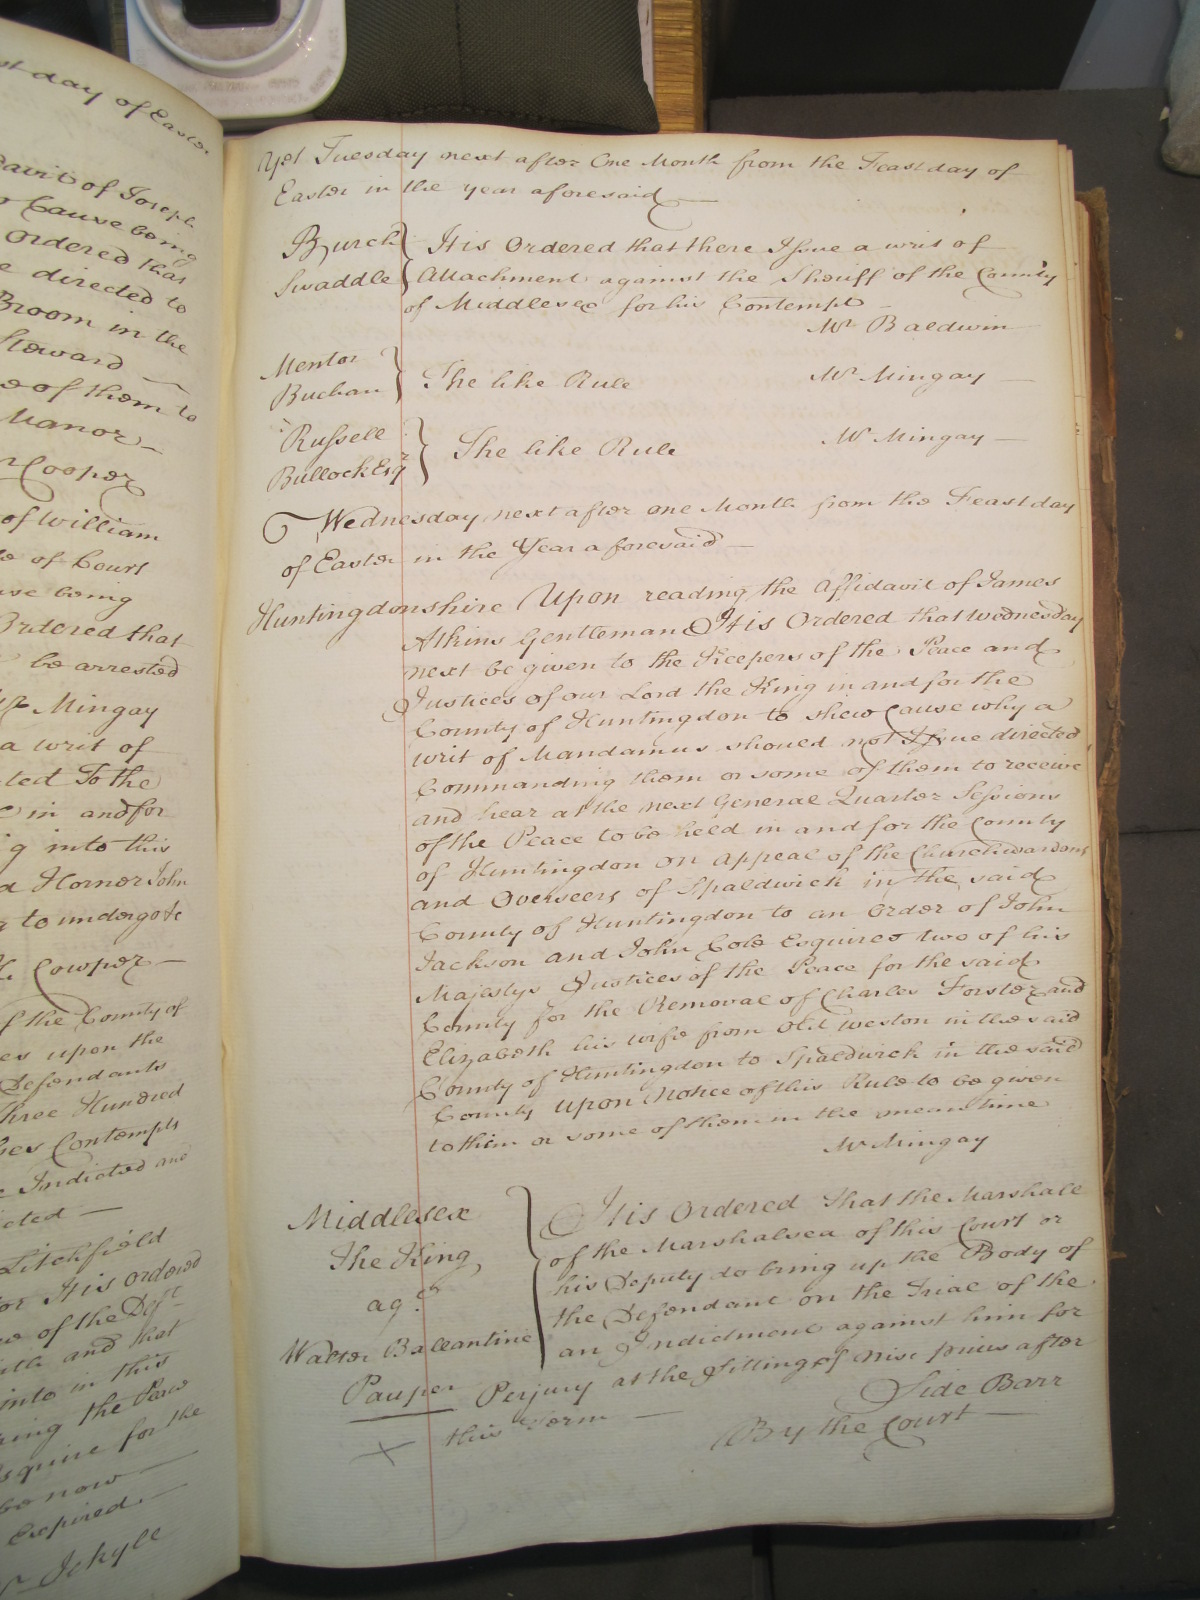 st day of Easter
davit of Joseph
Cause being
Ordered that
e directed to
Broom in the
Steward
e of them to
Manor
Cooper
of William
le of Court
use being
Ordered that
be arrested
Mr Mingay
a writ of
cted To the
in and for
g into this
d Horner John
to undergo &c
Cowper
f the County of
es upon the
Defendants
three Hundred
hes Contempts
Indicted and
icted
Litchfield
for It is ordered
e of the Deft
with and that
into in this
ring the Paw
Esquire for the
be now
Expired
Mr Jekyll
Yet Tuesday next after One Month from the Feast day of
Easter in the year aforesaid
Burch
Swaddle
It is Ordered that there Issue a writ of
Attachment against the Sheriff of the County
of Middlesex for his Contempt
Mr Baldwin
Mentor
Buchan
The like Rule Mr Mingay
Russell
Bullock Esqr
The like Rule Mr Mingay
Wednesday next after one Month from the Feast day
of Easter in the Year aforesaid
Huntingdonshire Upon reading the Affidavit of James
Atkins Gentleman It is Ordered that Wednesday
next be given to the Keepers of the Peace and
Justices of our Lord the King in and for the
County of Huntingdon to shew Cause why a
writ of Mandamus should not Issue directed
Commanding them or some of them to receive
and hear at the next General Quarter Sessions
of the Peace to be held in and for the County
of Huntingdon an appeal of the Churchwardens
and Overseers of Spaldwick in the said
County of Huntingdon to an Order of John
Jackson and John Cole Esquires two of his
Majestys Justices of the Peace for the said
County for the Removal of Charles Forster and
Elizabeth his wife from Old Weston in the said
County of Huntingdon to Spaldwick in the said
County upon Notice of this Rule to be given
to them or some of them in the mean time
Mr Mingay
Middlesex
The King
agt
Walter Ballantine
Pauper
It is Ordered that the Marshall
of the Marshalsea of this Court or
his Deputy do bring up the Body of
the Defendant on the Trial of the
an Indictment against him for
Perjury at the Sitting of Nisi prius after
this Term
Side Barr
By the Court